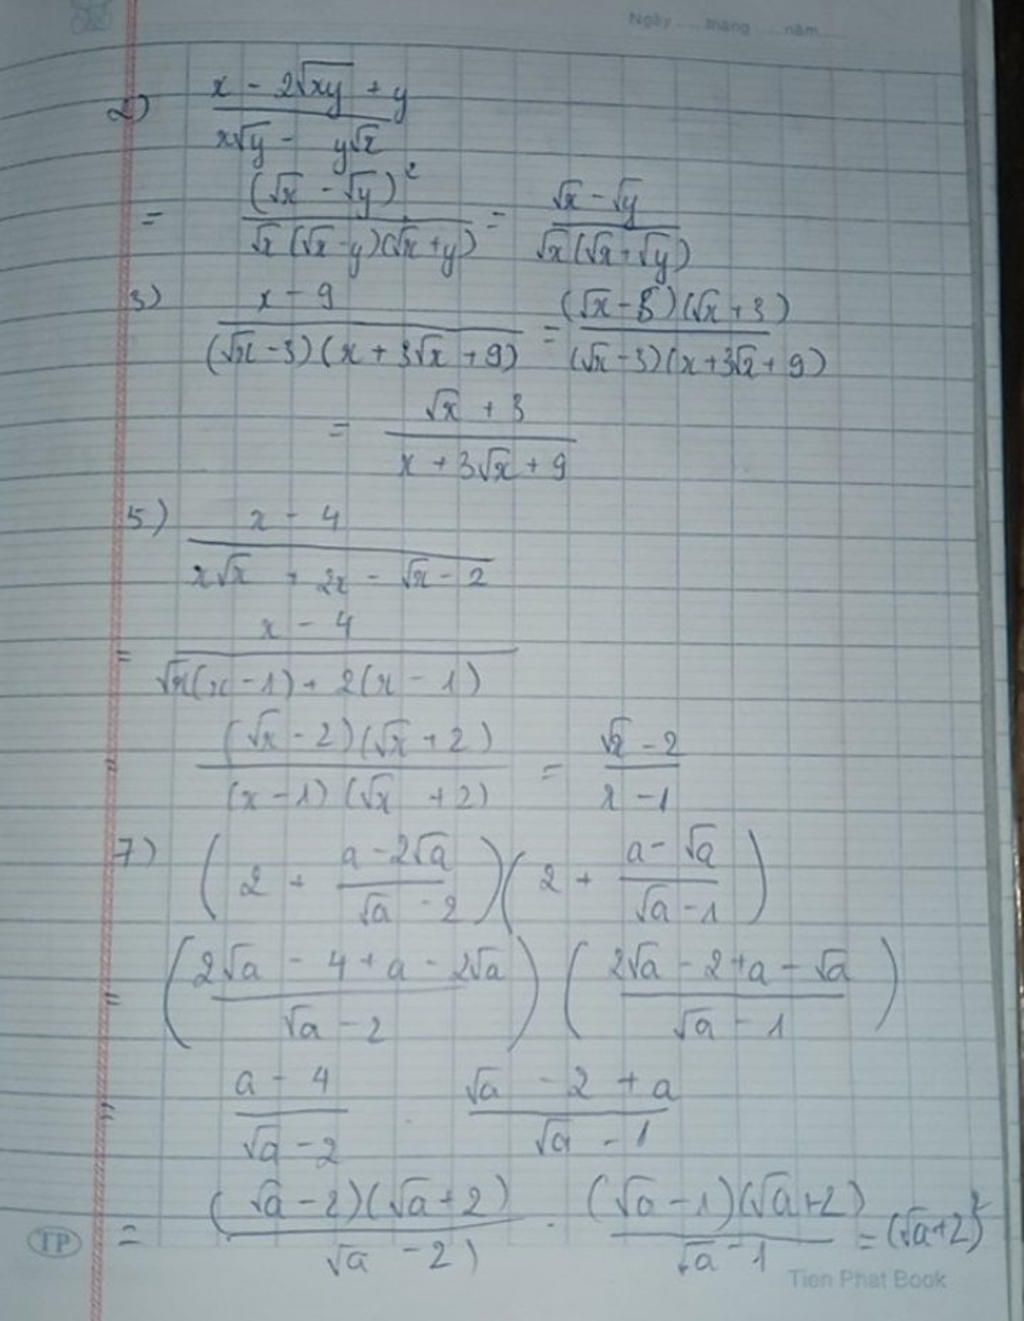 Ngày .... tháng .... năm ....
2) \frac{x - 2\sqrt{xy} + y}{x\sqrt{y} - y\sqrt{x}}
= \frac{(\sqrt{x} - \sqrt{y})^2}{\sqrt{x}(\sqrt{x} - y)(\sqrt{x} + y)} = \frac{\sqrt{x} - \sqrt{y}}{\sqrt{x}(\sqrt{x} + \sqrt{y})}
3) \frac{x - 9}{(\sqrt{x} - 3)(x + 3\sqrt{x} + 9)} = \frac{(\sqrt{x} - 3)(\sqrt{x} + 3)}{(\sqrt{x} - 3)(x + 3\sqrt{x} + 9)}
= \frac{\sqrt{x} + 3}{x + 3\sqrt{x} + 9}
5) \frac{x - 4}{x\sqrt{x} + 2x - \sqrt{x} - 2}
= \frac{x - 4}{\sqrt{x}(x - 1) + 2(x - 1)}
= \frac{(\sqrt{x} - 2)(\sqrt{x} + 2)}{(x - 1)(\sqrt{x} + 2)} = \frac{\sqrt{x} - 2}{x - 1}
7) (2 + \frac{a - 2\sqrt{a}}{\sqrt{a} - 2})(2 + \frac{a - \sqrt{a}}{\sqrt{a} - 1})
= (\frac{2\sqrt{a} - 4 + a - 2\sqrt{a}}{\sqrt{a} - 2}) (\frac{2\sqrt{a} - 2 + a - \sqrt{a}}{\sqrt{a} - 1})
= \frac{a - 4}{\sqrt{a} - 2} . \frac{\sqrt{a} - 2 + a}{\sqrt{a} - 1}
= \frac{(\sqrt{a} - 2)(\sqrt{a} + 2)}{\sqrt{a} - 2)} . \frac{(\sqrt{a} - 1)(\sqrt{a} + 2)}{\sqrt{a} - 1} = (\sqrt{a} + 2)^2
TP
Tien Phat Book